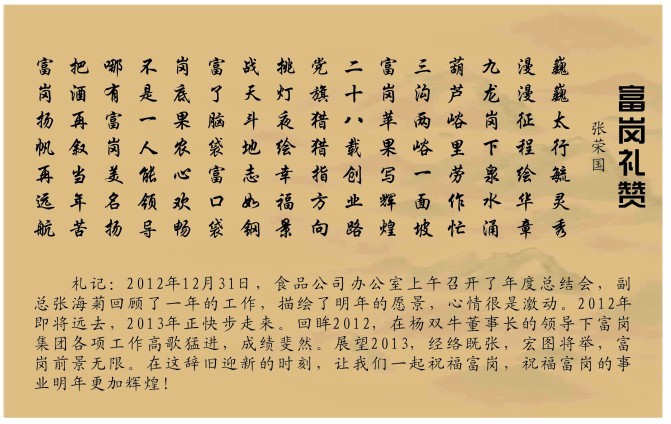 富岗礼赞
张荣国
巍巍太行毓灵秀
漫漫征程绘华章
九龙岗下泉水涌
葫芦峪里劳作忙
三沟两峪一面坡
富岗苹果写辉煌
二十八载创业路
党旗猎猎指方向
挑灯夜绘幸福景
战天斗地志如钢
富了脑袋富口袋
岗底果农心欢畅
不是一人能领导
哪有富岗美名扬
把酒再叙当年苦
富岗扬帆再远航
札记：2012年12月31日，食品公司办公室上午召开了年度总结会，副
总张海菊回顾了一年的工作，描绘了明年的愿景，心情很是激动。2012年
即将远去，2013年正快步走来。回眸2012，在杨双牛董事长的领导下富岗
集团各项工作高歌猛进，成绩斐然。展望2013，经络既张，宏图将举，富
岗前景无限。在这辞旧迎新的时刻，让我们一起祝福富岗，祝福富岗的事
业明年更加辉煌！